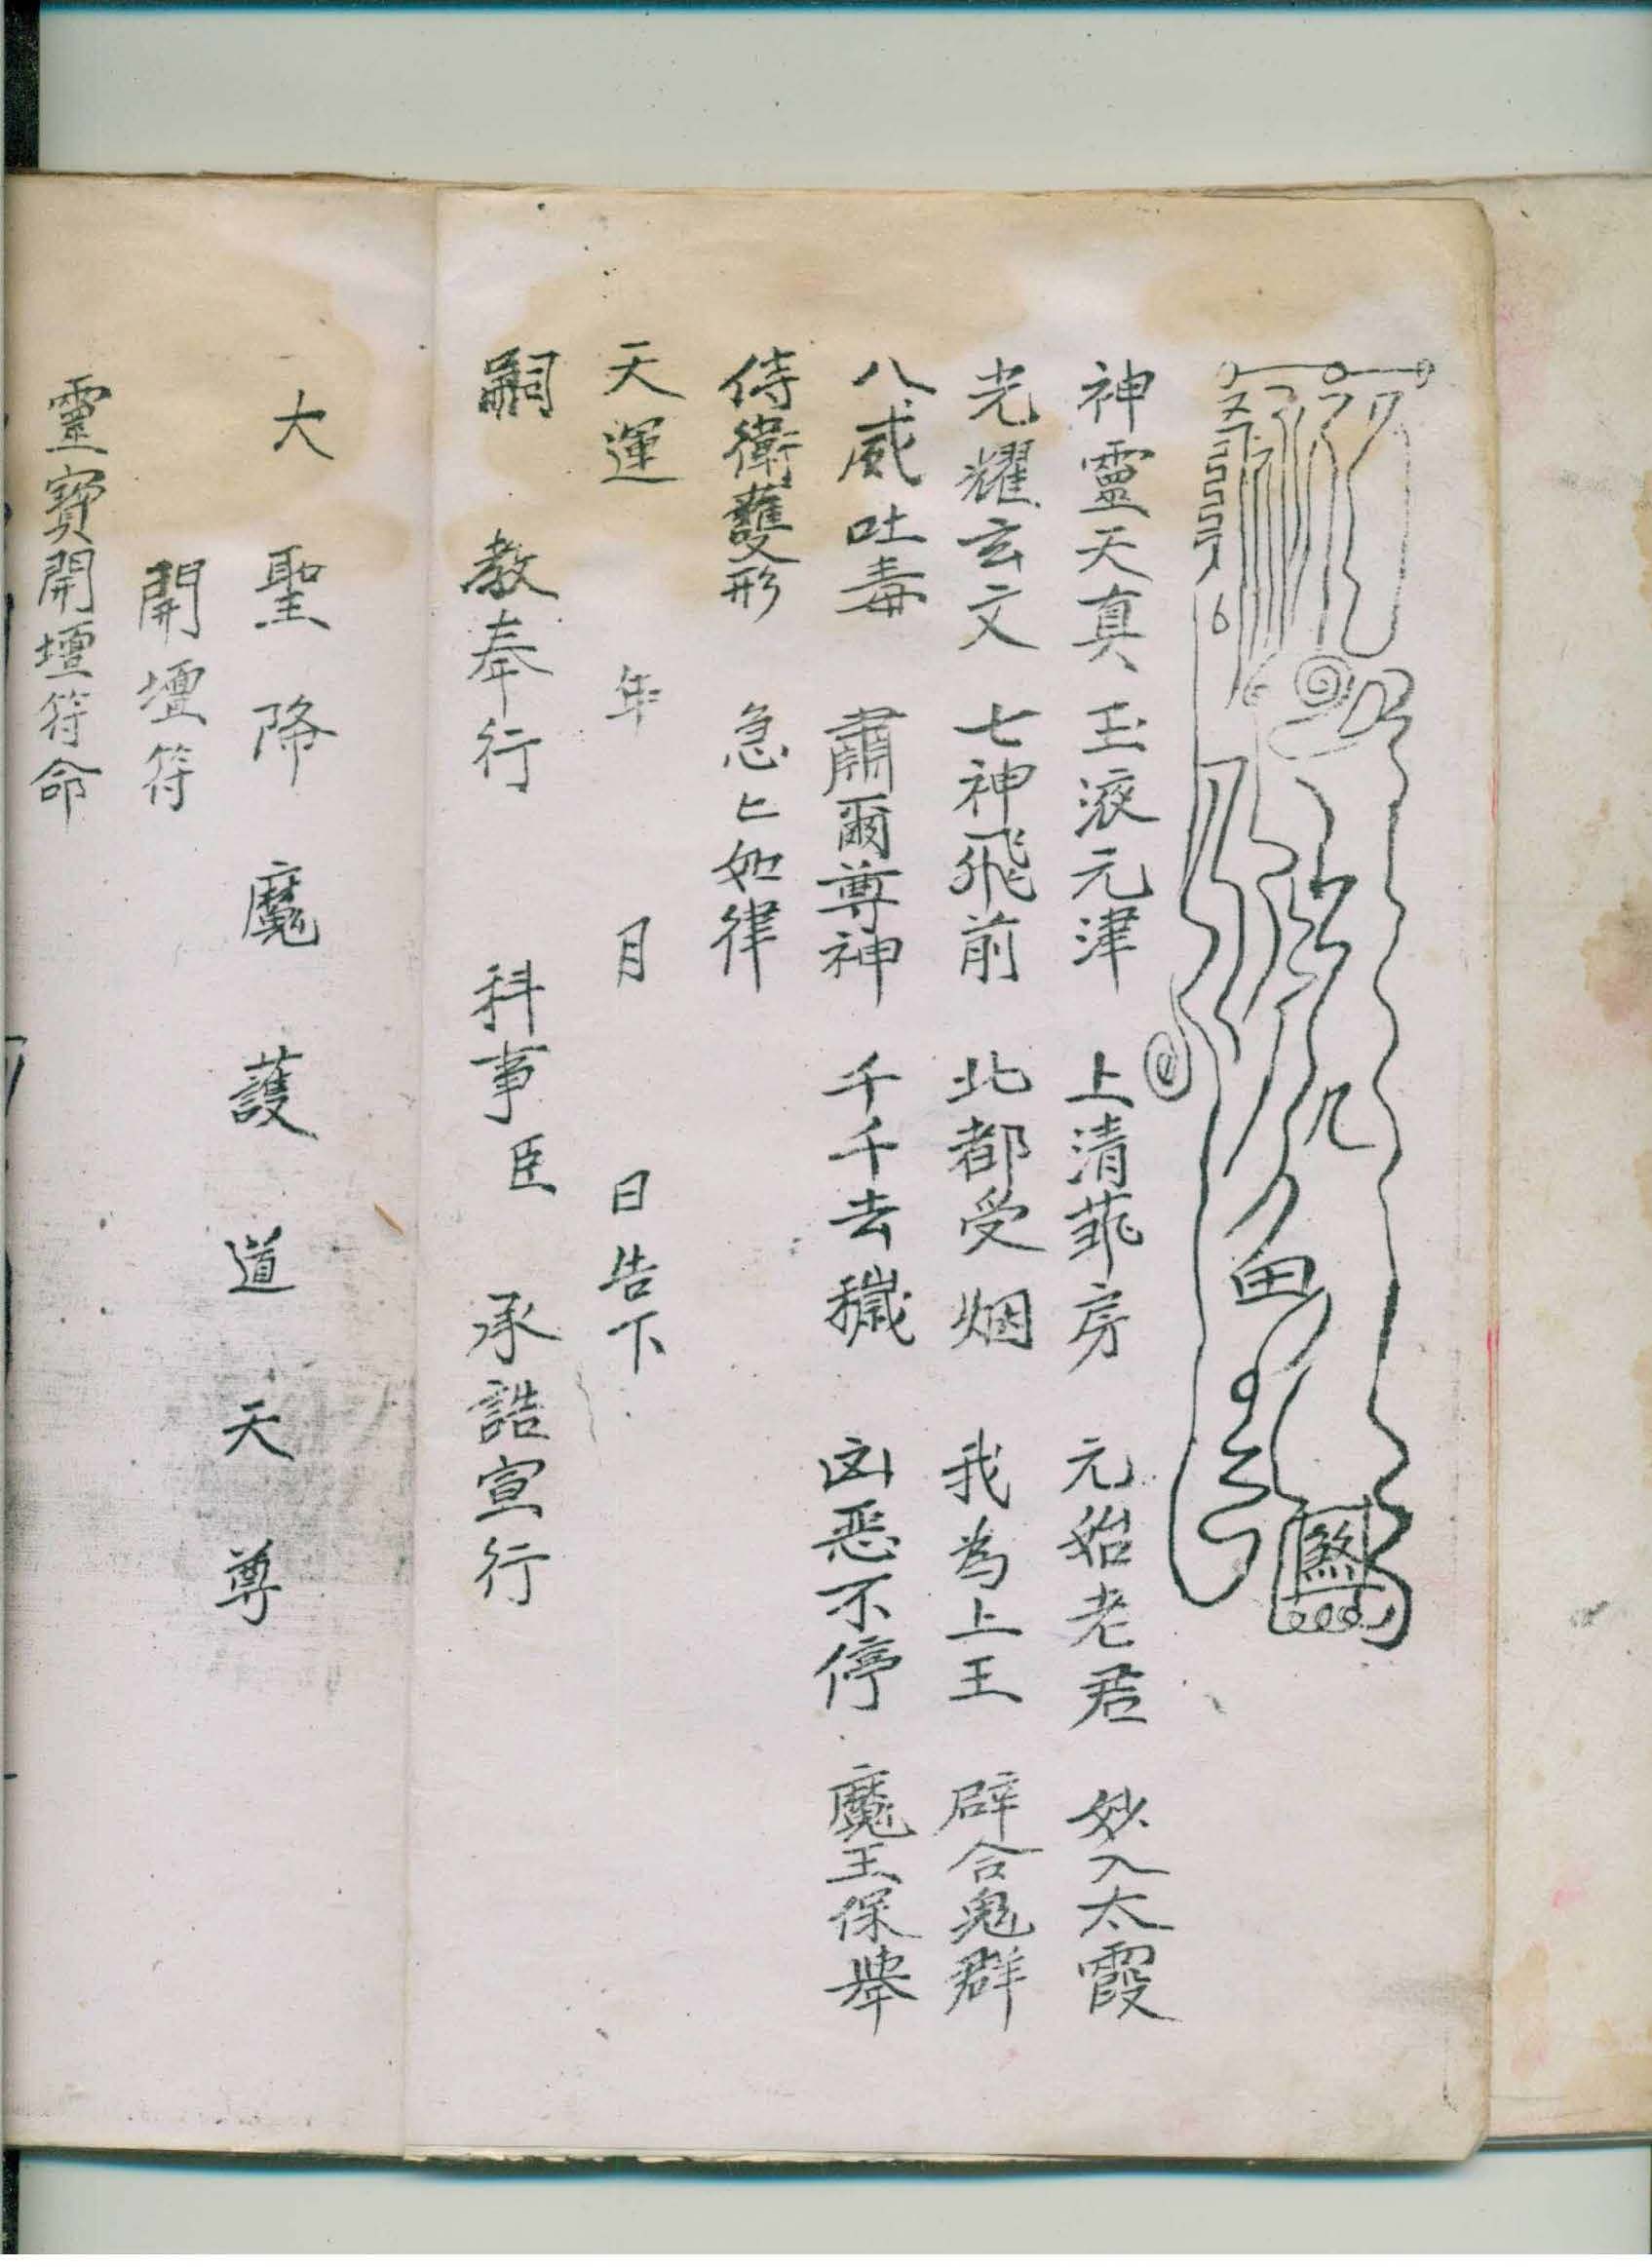 神靈天真 玉液元津 上清菲房 元始老君 妙入太霞
光耀玄文 七神飛前 北都受烟 我為上王 辟合鬼群
八威吐毒 肅爾尊神 千千去穢 凶惡不停 魔王保舉
侍衛護形 急〻如律
天運 年 月 日告下
嗣 教奉行 科事臣 承誥宣行
大聖降魔護道天尊
開壇符
靈寶開壇符命